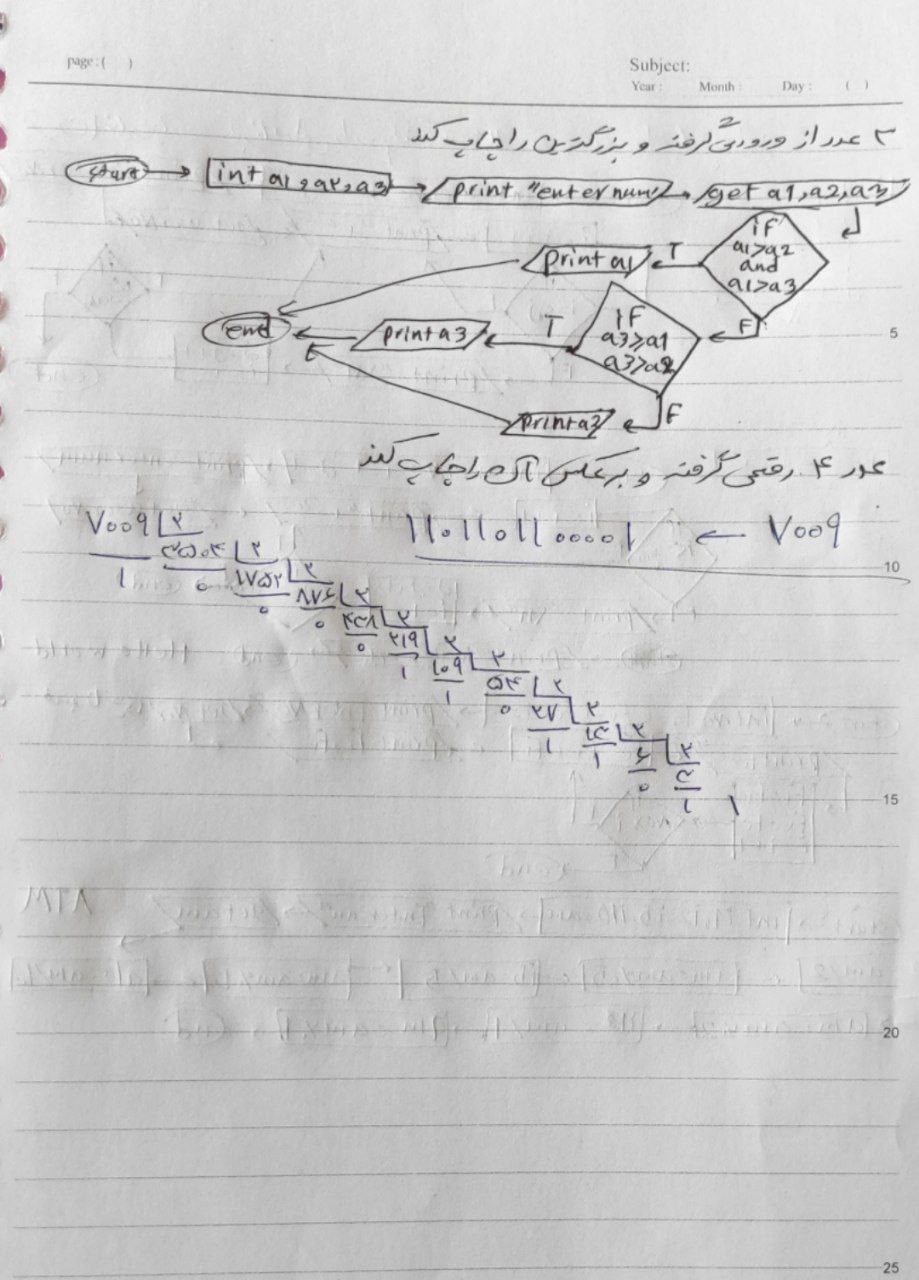 page : (    )
Subject:
Year :    Month :    Day :    (    )
۳ عدد از ورودی گرفته و بزرگترین را چاپ کند
2
start
int a1, a۲, a3
print "enter num"
get a1, a2, a3
if
a1>a2
and
a1>a3
T
print a1
F
if
a3≥a1
a3≥a2
T
print a3
end
F
print a2
عدد ۴ رقمی گرفته و برعکس آن را چاپ کند
۷۰۰۹ ۲
۱۱۰۱۱۰۱۱۰۰۰۰۱ ← ۷۰۰۹
۱ ۳۵۰۴ ۲
۰ ۱۷۵۲ ۲
۰ ۸۷۶ ۲
۰ ۴۳۸ ۲
۰ ۲۱۹ ۲
۱ ۱۰۹ ۲
۱ ۵۴ ۲
۰ ۲۷ ۲
۱ ۱۳ ۲
۱ ۶ ۲
۰ ۳
۱ ۱
5
10
15
20
25